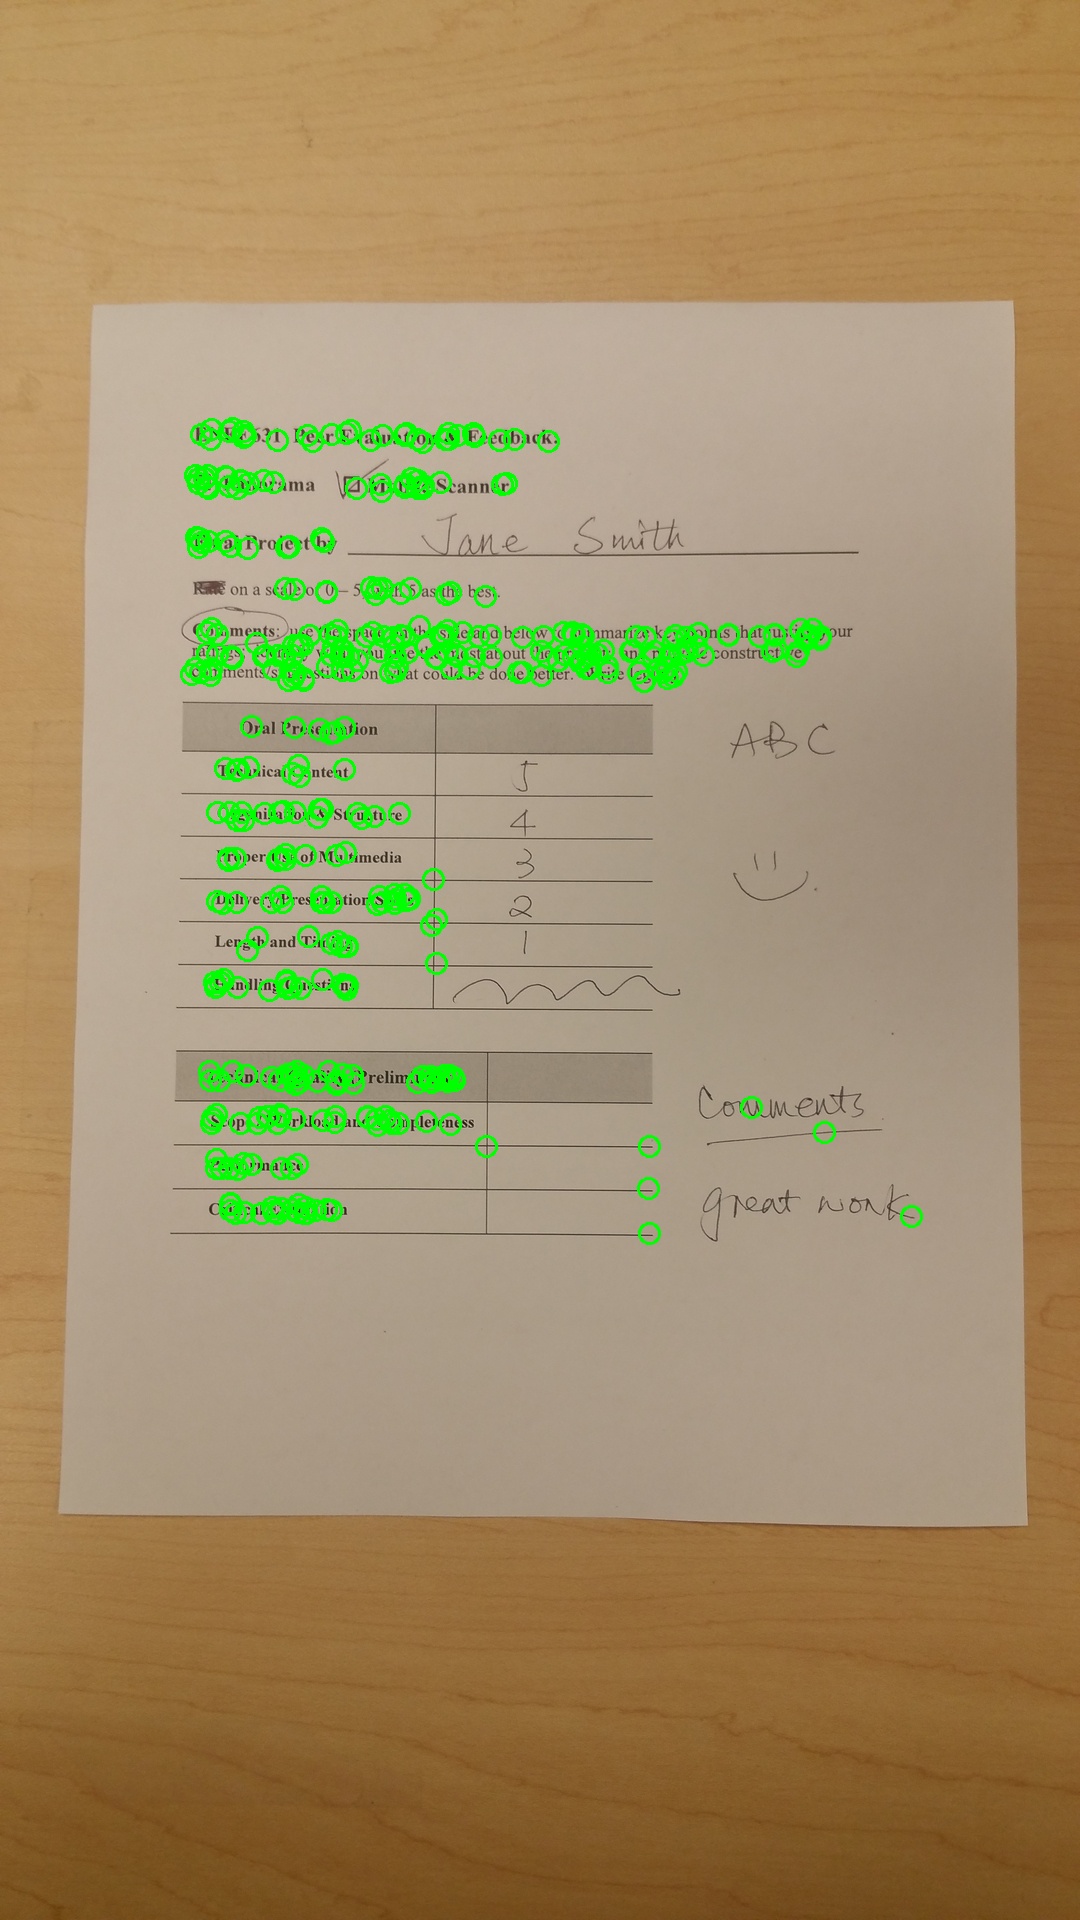 631 Peer Evaluation & Feedback.
Panorama Mobile Scanner
Final Project by Jane Smith
Rate on a scale of 0 – 5 with 5 as the best.
Comments: use the space on the side and below to summarize key points that justify your
ratings. Identify what you like the most about the project and provide constructive
comments/suggestions on what could be done better. Write legibly.
Oral Presentation
Technical Content 5
Organization & Structure 4
Proper Use of Multimedia 3
Delivery/Presentation Skills 2
Length and Timing 1
Handling Questions
ABC
Technical Quality (Preliminary)
Scope (Workload and Completeness
Performance
Comments
great work.